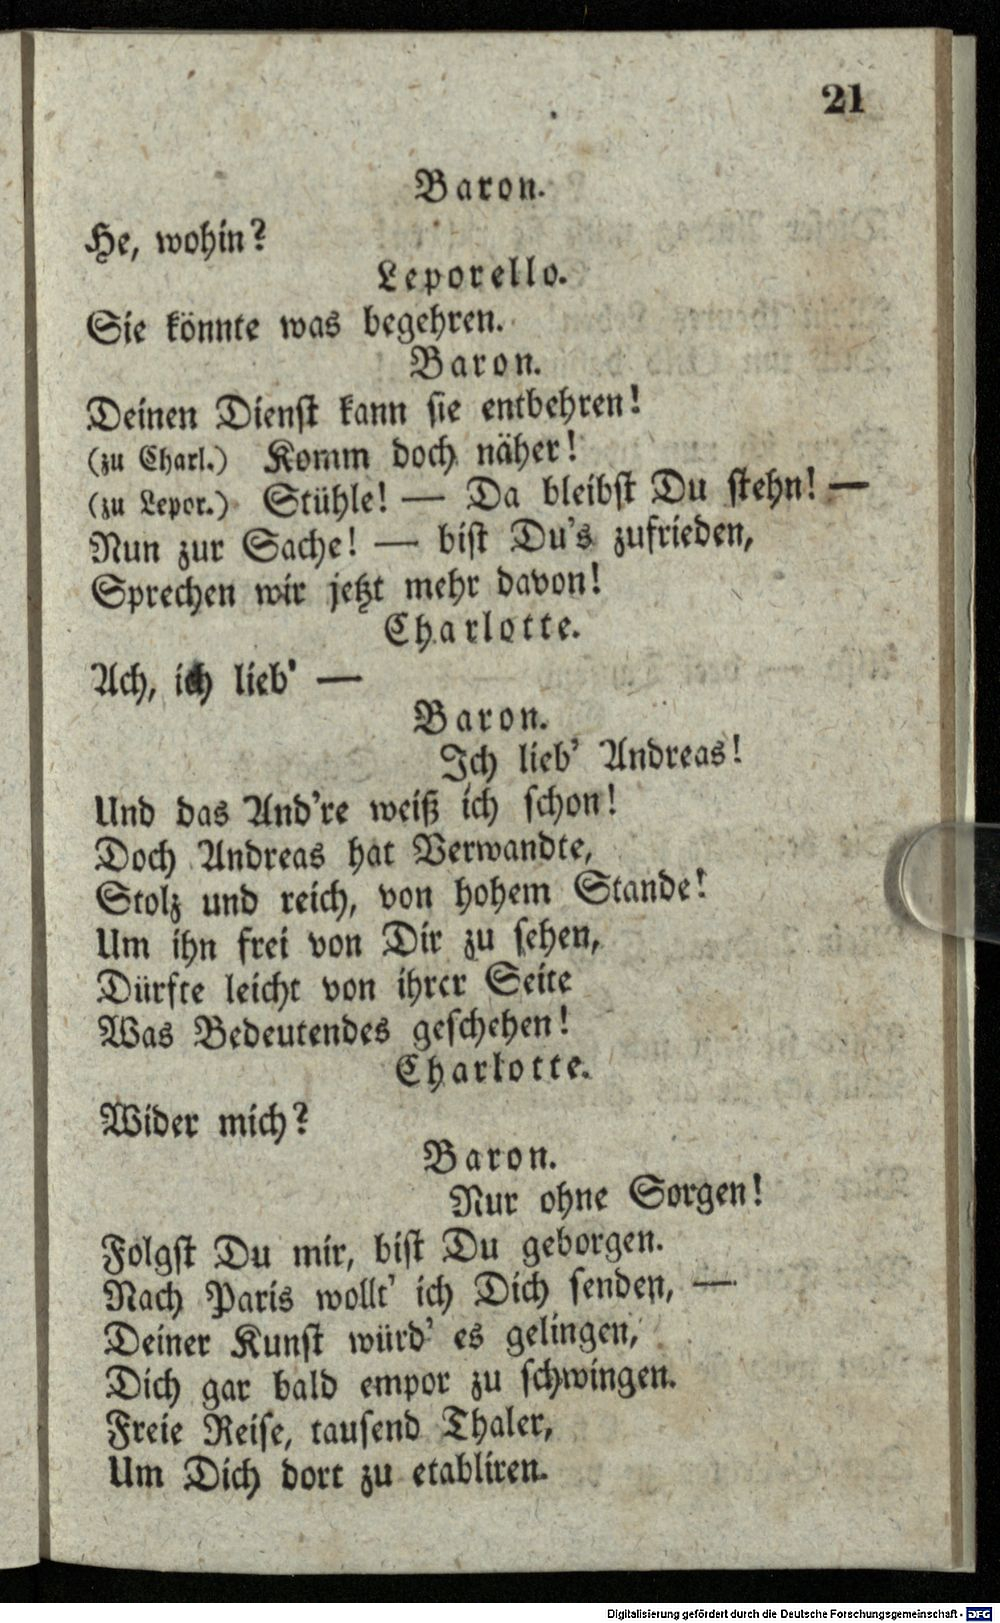 21
Baron.
He, wohin?
Leporello.
Sie könnte was begehren.
Baron.
Deinen Dienst kann sie entbehren!
(zu Charl.) Komm doch näher!
(zu Lepor.) Stühle! — Da bleibst Du stehn! —
Nun zur Sache! — bist Du's zufrieden,
Sprechen wir jetzt mehr davon!
Charlotte.
Ach, ich lieb' —
Baron.
Ich lieb' Andreas!
Und das And're weiß ich schon!
Doch Andreas hat Verwandte,
Stolz und reich, von hohem Stande!
Um ihn frei von Dir zu sehen,
Dürfte leicht von ihrer Seite
Was Bedeutendes geschehen!
Charlotte.
Wider mich?
Baron.
Nur ohne Sorgen!
Folgst Du mir, bist Du geborgen.
Nach Paris wollt' ich Dich senden, —
Deiner Kunst würd' es gelingen,
Dich gar bald empor zu schwingen.
Freie Reise, tausend Thaler,
Um Dich dort zu etabliren.
Digitalisierung gefördert durch die Deutsche Forschungsgemeinschaft - DFG